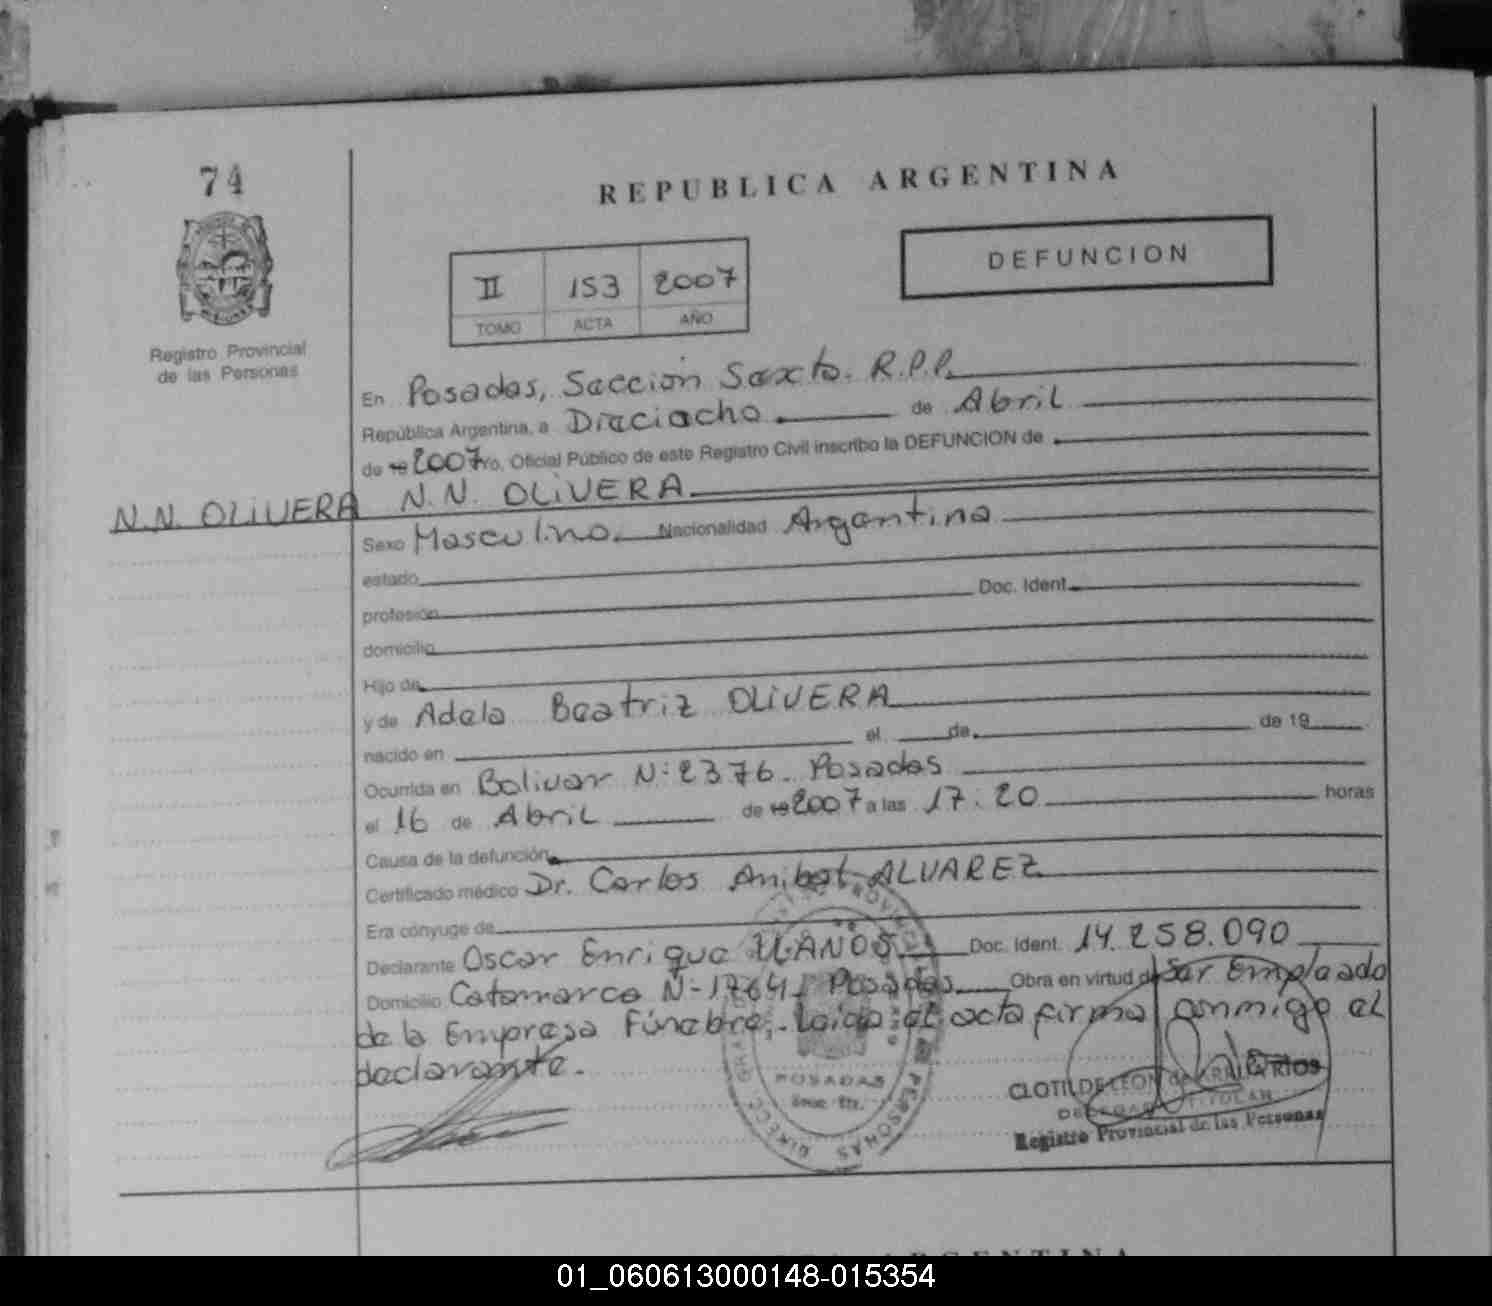 74
REPUBLICA ARGENTINA
DEFUNCION
II 153 2007
TOMO ACTA AÑO
Registro Provincial
de las Personas
En Posadas, Sección Sexta. R.P.P.
República Argentina, a Dieciocho de Abril
de 19 2007 Yo, Oficial Público de este Registro Civil inscribo la DEFUNCION de
N.N. OLIVERA N.N. OLIVERA
Sexo Masculino. Nacionalidad Argentina
estado
profesión Doc. Ident.
domicilio
Hijo de
y de Adela Beatriz OLIVERA
nacido en el de de 19
Ocurrida en Bolivar N: 2376. Posadas
el 16 de Abril de 19 2007 a las 17:20 horas
Causa de la defunción
Certificado médico Dr. Carlos Anibal ALVAREZ
Era cónyuge de
Declarante Oscar Enrique LLANOS Doc. Ident. 14.258.090
Domicilio Catamarca N-1764, Posadas Obra en virtud de Ser Empleado
de la Empresa Fúnebre.- Leída el acta firma conmigo el
declarante.
POSADAS
CLOTILDE LEON de
DELEGADA TITULAR
Registro Provincial de las Personas
ARGENTINA
01_060613000148-015354